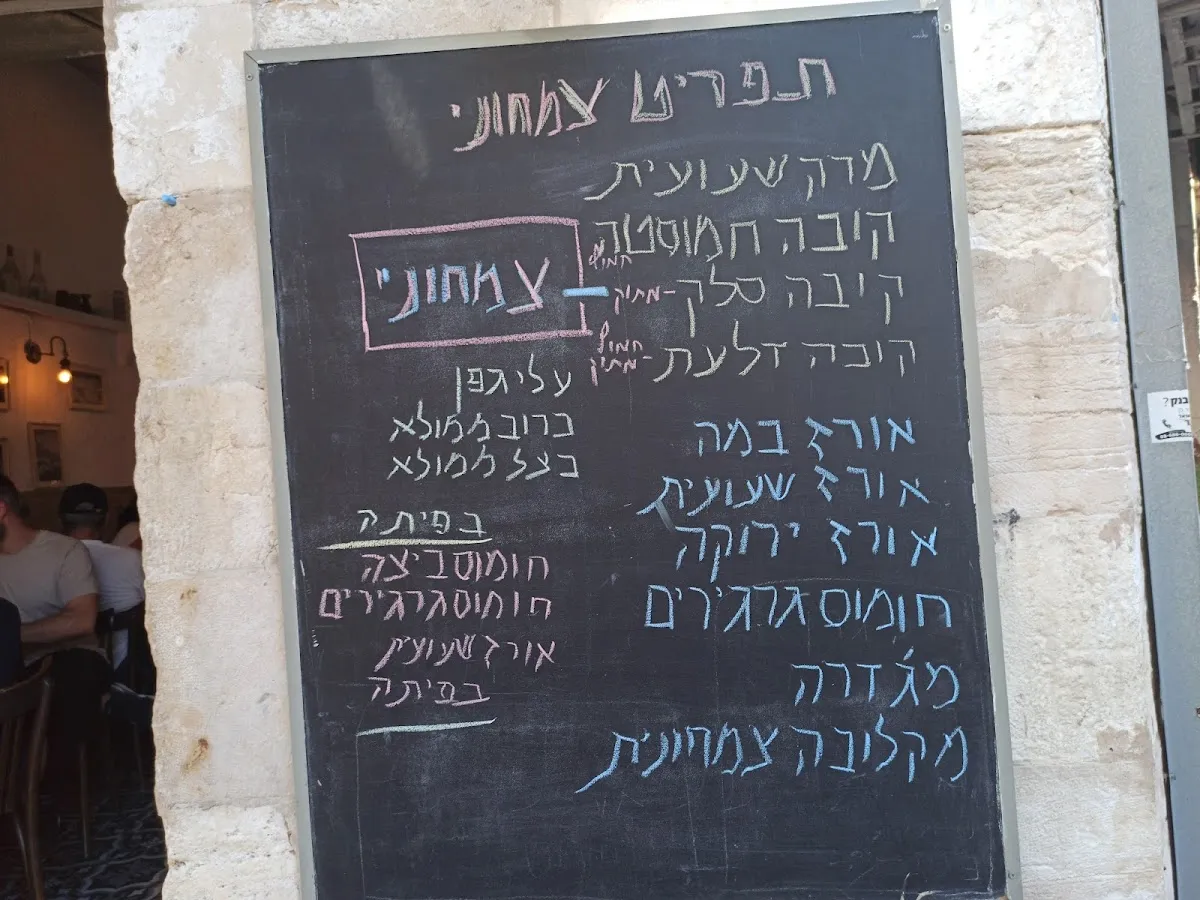 תפריט צמחוני
מרק שעועית
קובה חמוסטה
חמוץ
קיבה סלק - מתוק
קובה דלעת - חמוץ מתוק
אורז במה
אורז שעועית
אורז ירוקה
חומוס גרגירים
מג'דרה
מקלובה צמחיונית
צמחוני
עלי גפן
כרוב ממולא
בצל ממולא
בפיתה
חומוס ביצה
חומוס גרגירים
אורז שעועית
בפיתה
בנק?